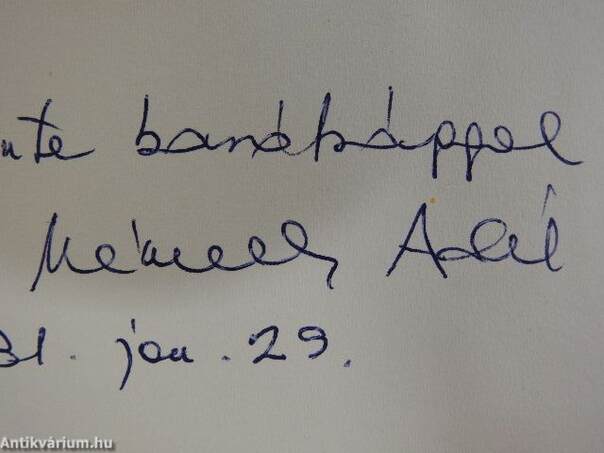 nte barátsággal
Németh
81. jan. 29.
Antikvárium.hu